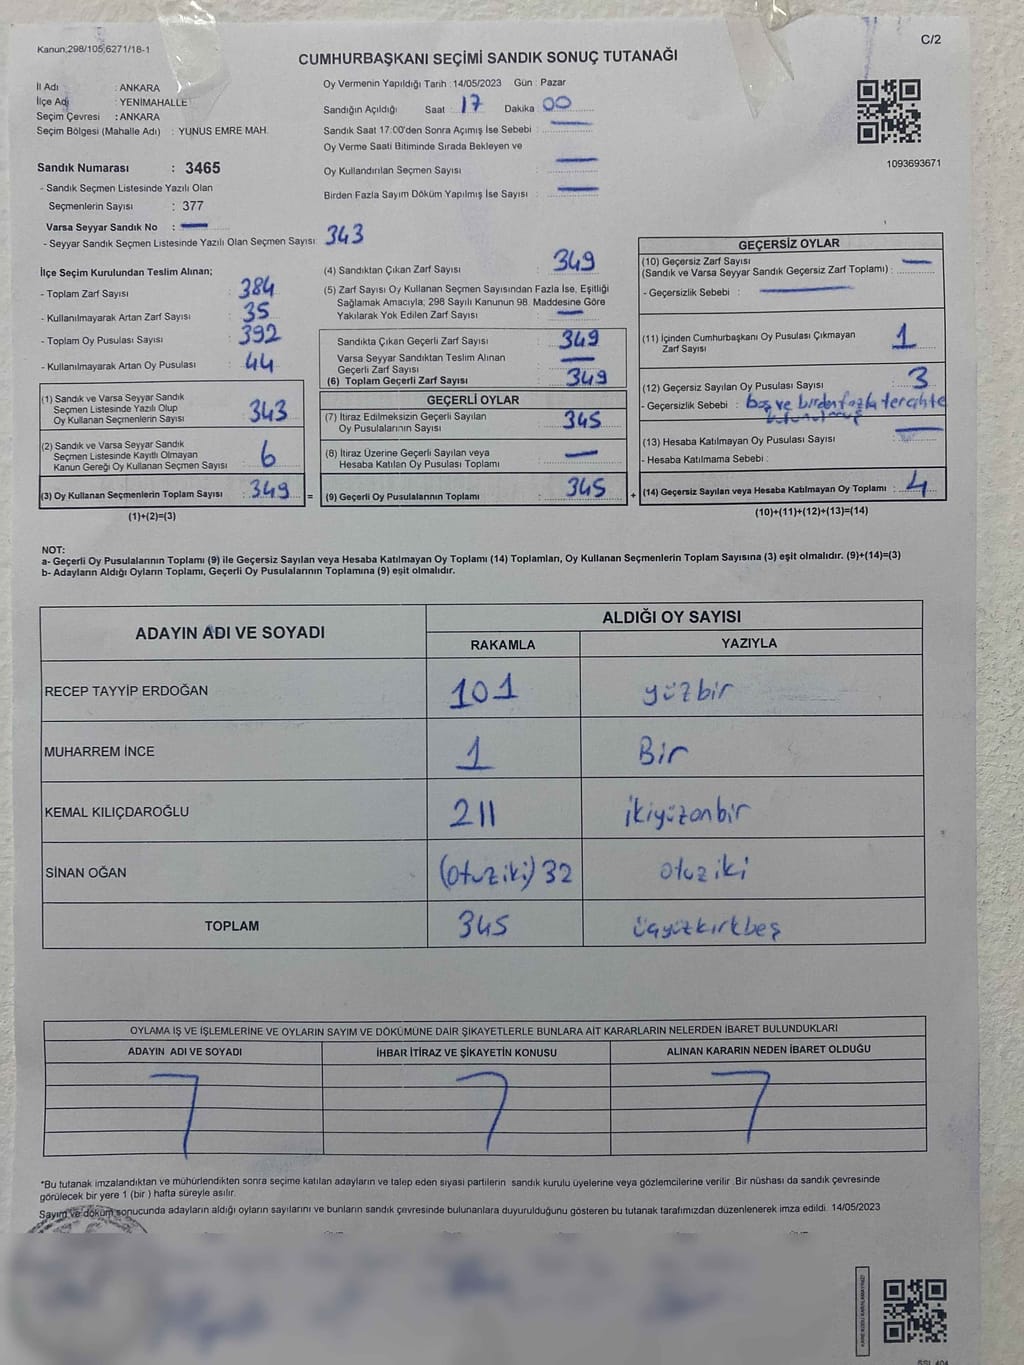 Kanun,298/105,6271/18-1
C/2
CUMHURBAŞKANI SEÇİMİ SANDIK SONUÇ TUTANAĞI
İl Adı : ANKARA
İlçe Adı : YENİMAHALLE
Seçim Çevresi : ANKARA
Seçim Bölgesi (Mahalle Adı) : YUNUS EMRE MAH.
Oy Vermenin Yapıldığı Tarih : 14/05/2023 Gün : Pazar
Sandığın Açıldığı Saat : 17 Dakika : 00
Sandık Saat 17:00'den Sonra Açımış İse Sebebi :
Oy Verme Saati Bitiminde Sırada Bekleyen ve
Oy Kullandırılan Seçmen Sayısı :
Birden Fazla Sayım Döküm Yapılmış İse Sayısı :
1093693671
Sandık Numarası : 3465
- Sandık Seçmen Listesinde Yazılı Olan
Seçmenlerin Sayısı : 377
Varsa Seyyar Sandık No :
- Seyyar Sandık Seçmen Listesinde Yazılı Olan Seçmen Sayısı: 343
İlçe Seçim Kurulundan Teslim Alınan;
- Toplam Zarf Sayısı : 384
- Kullanılmayarak Artan Zarf Sayısı : 35
- Toplam Oy Pusulası Sayısı : 392
- Kullanılmayarak Artan Oy Pusulası : 44
(1) Sandık ve Varsa Seyyar Sandık
Seçmen Listesinde Yazılı Olup
Oy Kullanan Seçmenlerin Sayısı : 343
(2) Sandık ve Varsa Seyyar Sandık
Seçmen Listesinde Kayıtlı Olmayan
Kanun Gereği Oy Kullanan Seçmen Sayısı : 6
(3) Oy Kullanan Seçmenlerin Toplam Sayısı : 349 =
(1)+(2)=(3)
(4) Sandıktan Çıkan Zarf Sayısı : 349
(5) Zarf Sayısı Oy Kullanan Seçmen Sayısından Fazla İse, Eşitliği
Sağlamak Amacıyla, 298 Sayılı Kanunun 98. Maddesine Göre
Yakılarak Yok Edilen Zarf Sayısı :
Sandıkta Çıkan Geçerli Zarf Sayısı : 349
Varsa Seyyar Sandıktan Teslim Alınan
Geçerli Zarf Sayısı :
(6) Toplam Geçerli Zarf Sayısı : 349
GEÇERLİ OYLAR
(7) İtiraz Edilmeksizin Geçerli Sayılan
Oy Pusulalarının Sayısı : 345
(8) İtiraz Üzerine Geçerli Sayılan veya
Hesaba Katılan Oy Pusulası Toplamı :
(9) Geçerli Oy Pusulalarının Toplamı : 345 +
GEÇERSİZ OYLAR
(10) Geçersiz Zarf Sayısı
(Sandık ve Varsa Seyyar Sandık Geçersiz Zarf Toplamı) :
- Geçersizlik Sebebi :
(11) İçinden Cumhurbaşkanı Oy Pusulası Çıkmayan
Zarf Sayısı : 1
(12) Geçersiz Sayılan Oy Pusulası Sayısı : 3
- Geçersizlik Sebebi : boş ve birden fazla tercihte
bulunulmuş
(13) Hesaba Katılmayan Oy Pusulası Sayısı :
- Hesaba Katılmama Sebebi :
(14) Geçersiz Sayılan veya Hesaba Katılmayan Oy Toplamı : 4
(10)+(11)+(12)+(13)=(14)
NOT:
a- Geçerli Oy Pusulalarının Toplamı (9) ile Geçersiz Sayılan veya Hesaba Katılmayan Oy Toplamı (14) Toplamları, Oy Kullanan Seçmenlerin Toplam Sayısına (3) eşit olmalıdır. (9)+(14)=(3)
b- Adayların Aldığı Oyların Toplamı, Geçerli Oy Pusulalarının Toplamına (9) eşit olmalıdır.
ADAYIN ADI VE SOYADI
ALDIĞI OY SAYISI
RAKAMLA YAZIYLA
RECEP TAYYİP ERDOĞAN 101 yüzbir
MUHARREM İNCE 1 Bir
KEMAL KILIÇDAROĞLU 211 ikiyüzonbir
SİNAN OĞAN (otuziki) 32 otuziki
TOPLAM 345 üçyüzkırkbeş
OYLAMA İŞ VE İŞLEMLERİNE VE OYLARIN SAYIM VE DÖKÜMÜNE DAİR ŞİKAYETLERLE BUNLARA AİT KARARLARIN NELERDEN İBARET BULUNDUKLARI
ADAYIN ADI VE SOYADI İHBAR İTİRAZ VE ŞİKAYETİN KONUSU ALINAN KARARIN NEDEN İBARET OLDUĞU
*Bu tutanak imzalandıktan ve mühürlendikten sonra seçime katılan adayların ve talep eden siyasi partilerin sandık kurulu üyelerine veya gözlemcilerine verilir .Bir nüshası da sandık çevresinde
görülecek bir yere 1 (bir ) hafta süreyle asılır.
Sayım ve döküm sonucunda adayların aldığı oyların sayılarını ve bunların sandık çevresinde bulunanlara duyurulduğunu gösteren bu tutanak tarafımızdan düzenlenerek imza edildi. 14/05/2023